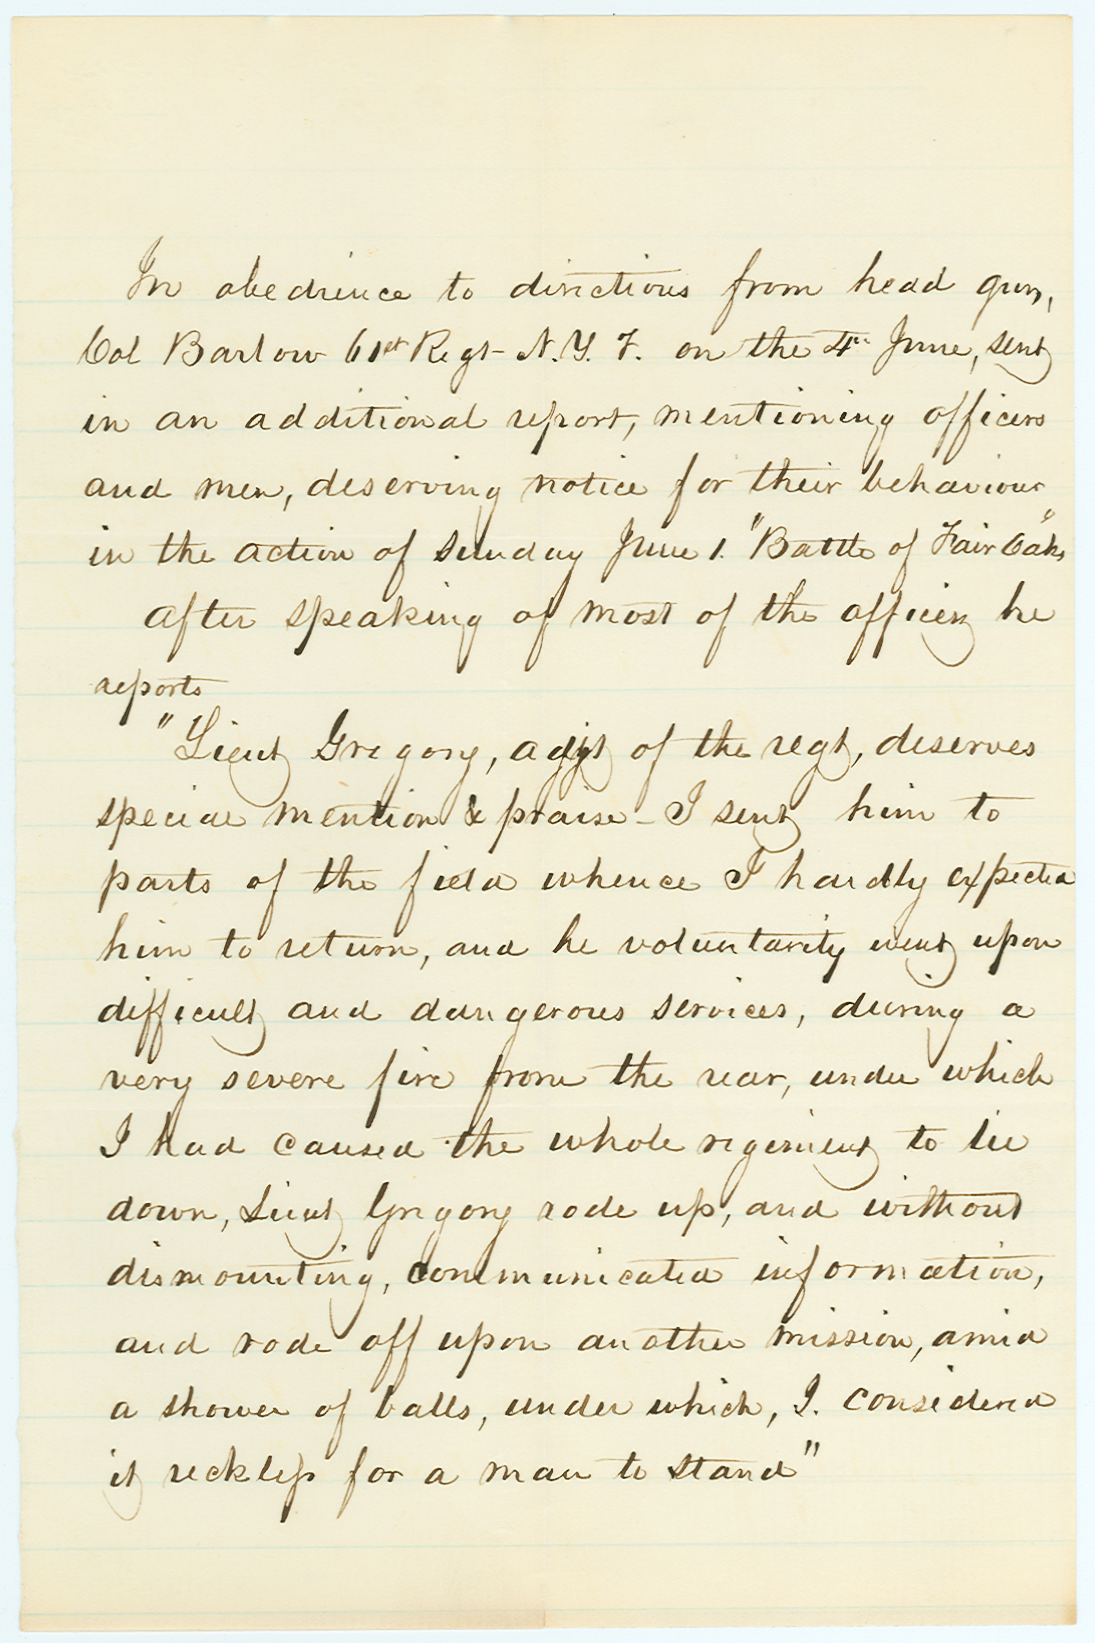 In obedience to directions from head qurs,
Col Barlow 61st Regt N.Y. V. on the 4th June, sent
in an additional report, mentioning officers
and men, deserving notice for their behaviour
in the action of Sunday June 1. "Battle of Fair Oaks"
After speaking of most of the officers he
reports
"Lieut Gregory, adjt of the regt, deserves
special mention & praise - I sent him to
parts of the field whence I hardly expected
him to return, and he voluntarily went upon
difficult and dangerous services, during a
very severe fire from the rear, under which
I had caused the whole regiment to lie
down, Lieut Gregory rode up, and without
dismounting, communicated information,
and rode off upon another mission, amid
a shower of balls, under which, I. considered
it reckless for a man to stand"